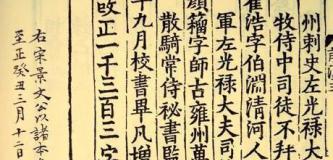 州刺史左光禄大夫
牧侍中司徒不拜
崔浩字伯淵清河人
軍左光禄大夫司
顔籀字師古雍州萬
散騎常侍秘書監
十九月校書畢凡增
改正一千三百三字
右宋景文公以諸本
至正癸丑三月十二日